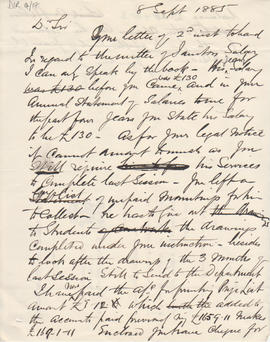 8 Sept 1885
Dr Sir
Your letter of 2d inst to hand
In regard to the matter of Janitors Salary
I can only speak by the book — His Salary
was £130
was £130 before you came, And in your
Annual Statement of Salaries to me for
the past four years you State his Salary
to be £130 — As for your legal Notice
it cannot amount to much as you
Still require his Services
to Complete last Season — You left a
list of unpaid Mountings for him
to Collect — He has to give out
to Students the drawings
Completed under your instruction — besides
to look after the drawings of the 3 Months of
last Session Still to Send to the Department
I have paid the a/c for printing
Among £ 12 which added to
the accounts paid previously £1659-11 makes
Enclosed you have Cheque for